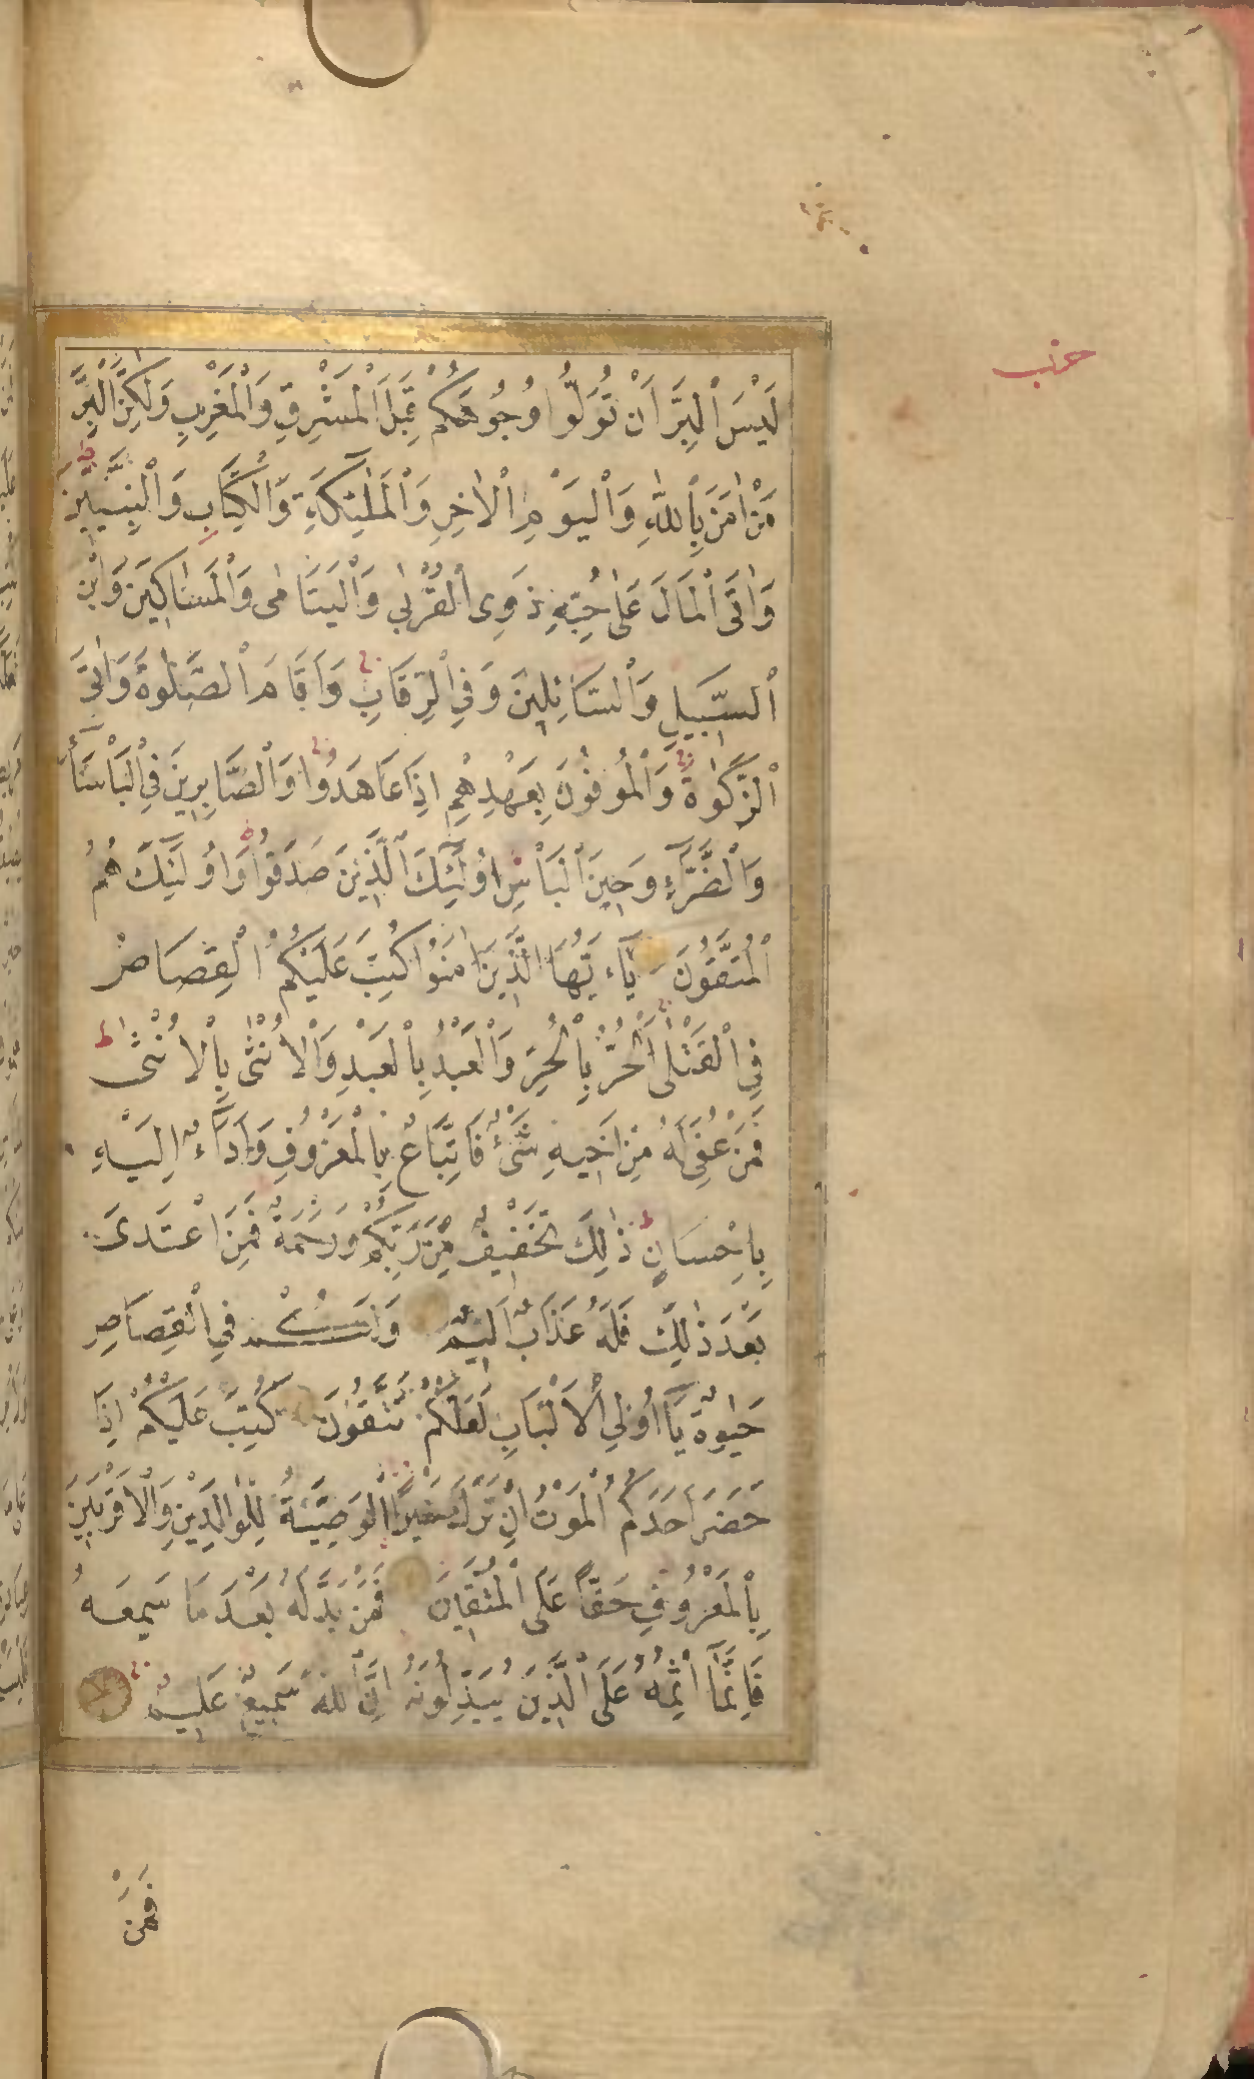 حزب
لَيْسَ الْبِرَّ اَنْ تُوَلُّوا وُجُوهَكُمْ قِبَلَ الْمَشْرِقِ وَالْمَغْرِبِ وَلٰكِنَّ الْبِرَّ
مَنْ اٰمَنَ بِاللّٰهِ وَالْيَوْمِ الْاٰخِرِ وَالْمَلٰٓئِكَةِ وَالْكِتَابِ وَالنَّبِيّٖنَ
وَاٰتَى الْمَالَ عَلٰى حُبِّهٖ ذَوِى الْقُرْبٰى وَالْيَتَامٰى وَالْمَسَاكٖينَ وَابْنَ
السَّبٖيلِ وَالسَّٓائِلٖينَ وَفِي الرِّقَابِ وَاَقَامَ الصَّلٰوةَ وَاٰتَى
الزَّكٰوةَ وَالْمُوفُونَ بِعَهْدِهِمْ اِذَا عَاهَدُوا وَالصَّابِرٖينَ فِي الْبَأْسَٓاءِ
وَالضَّرَّٓاءِ وَحٖينَ الْبَأْسِ اُولٰٓئِكَ الَّذٖينَ صَدَقُوا وَاُولٰٓئِكَ هُمُ
الْمُتَّقُونَ يَٓاءَيُّهَا الَّذٖينَ اٰمَنُوا كُتِبَ عَلَيْكُمُ الْقِصَاصُ
فِي الْقَتْلٰى اَلْحُرُّ بِالْحُرِّ وَالْعَبْدُ بِالْعَبْدِ وَالْاُنْثٰى بِالْاُنْثٰى ط
فَمَنْ عُفِيَ لَهُ مِنْ اَخٖيهِ شَىْءٌ فَاتِّبَاعٌ بِالْمَعْرُوفِ وَاَدَٓاءٌ اِلَيْهِ
بِاِحْسَانٍ ط ذٰلِكَ تَخْفٖيفٌ مِنْ رَبِّكُمْ وَرَحْمَةٌ فَمَنِ اعْتَدٰى
بَعْدَ ذٰلِكَ فَلَهُ عَذَابٌ اَلٖيمٌ وَلَكُمْ فِي الْقِصَاصِ
حَيٰوةٌ يَٓا اُولِي الْاَلْبَابِ لَعَلَّكُمْ تَتَّقُونَ كُتِبَ عَلَيْكُمْ اِذَا
حَضَرَ اَحَدَكُمُ الْمَوْتُ اِنْ تَرَكَ خَيْرًا الْوَصِيَّةُ لِلْوَالِدَيْنِ وَالْاَقْرَبٖينَ
بِالْمَعْرُوفِ حَقًّا عَلَى الْمُتَّقٖينَ فَمَنْ بَدَّلَهُ بَعْدَ مَا سَمِعَهُ
فَاِنَّمَٓا اِثْمُهُ عَلَى الَّذٖينَ يُبَدِّلُونَهُ اِنَّ اللّٰهَ سَمٖيعٌ عَلٖيمٌ
فَمَنْ